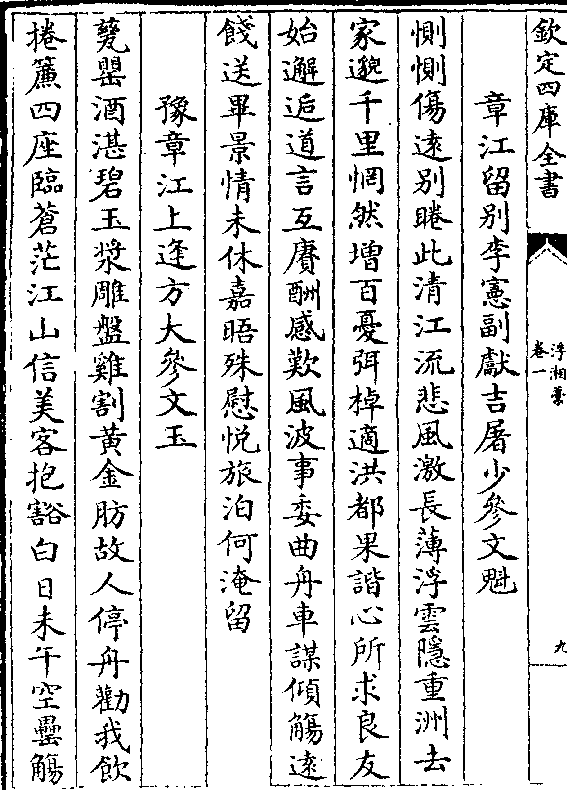 欽定四庫全書
浮湘藁
卷一
九
章江留別李憲副獻吉屠少參文魁
惻惻傷遠別睠此清江流悲風激長薄浮雲隱重洲去
家邈千里惘然増百憂弭棹適洪都果諧心所求良友
始邂逅道言互賡酬感歎風波事委曲舟車謀傾觴遠
餞送畢景情未休嘉晤殊慰悦旅泊何淹留
豫章江上逢方大參文玉
甆罌酒湛碧玉漿雕盤雞割黄金肪故人停舟勸我飲
捲簾四座臨蒼茫江山信美客抱豁白日未午空罍觴